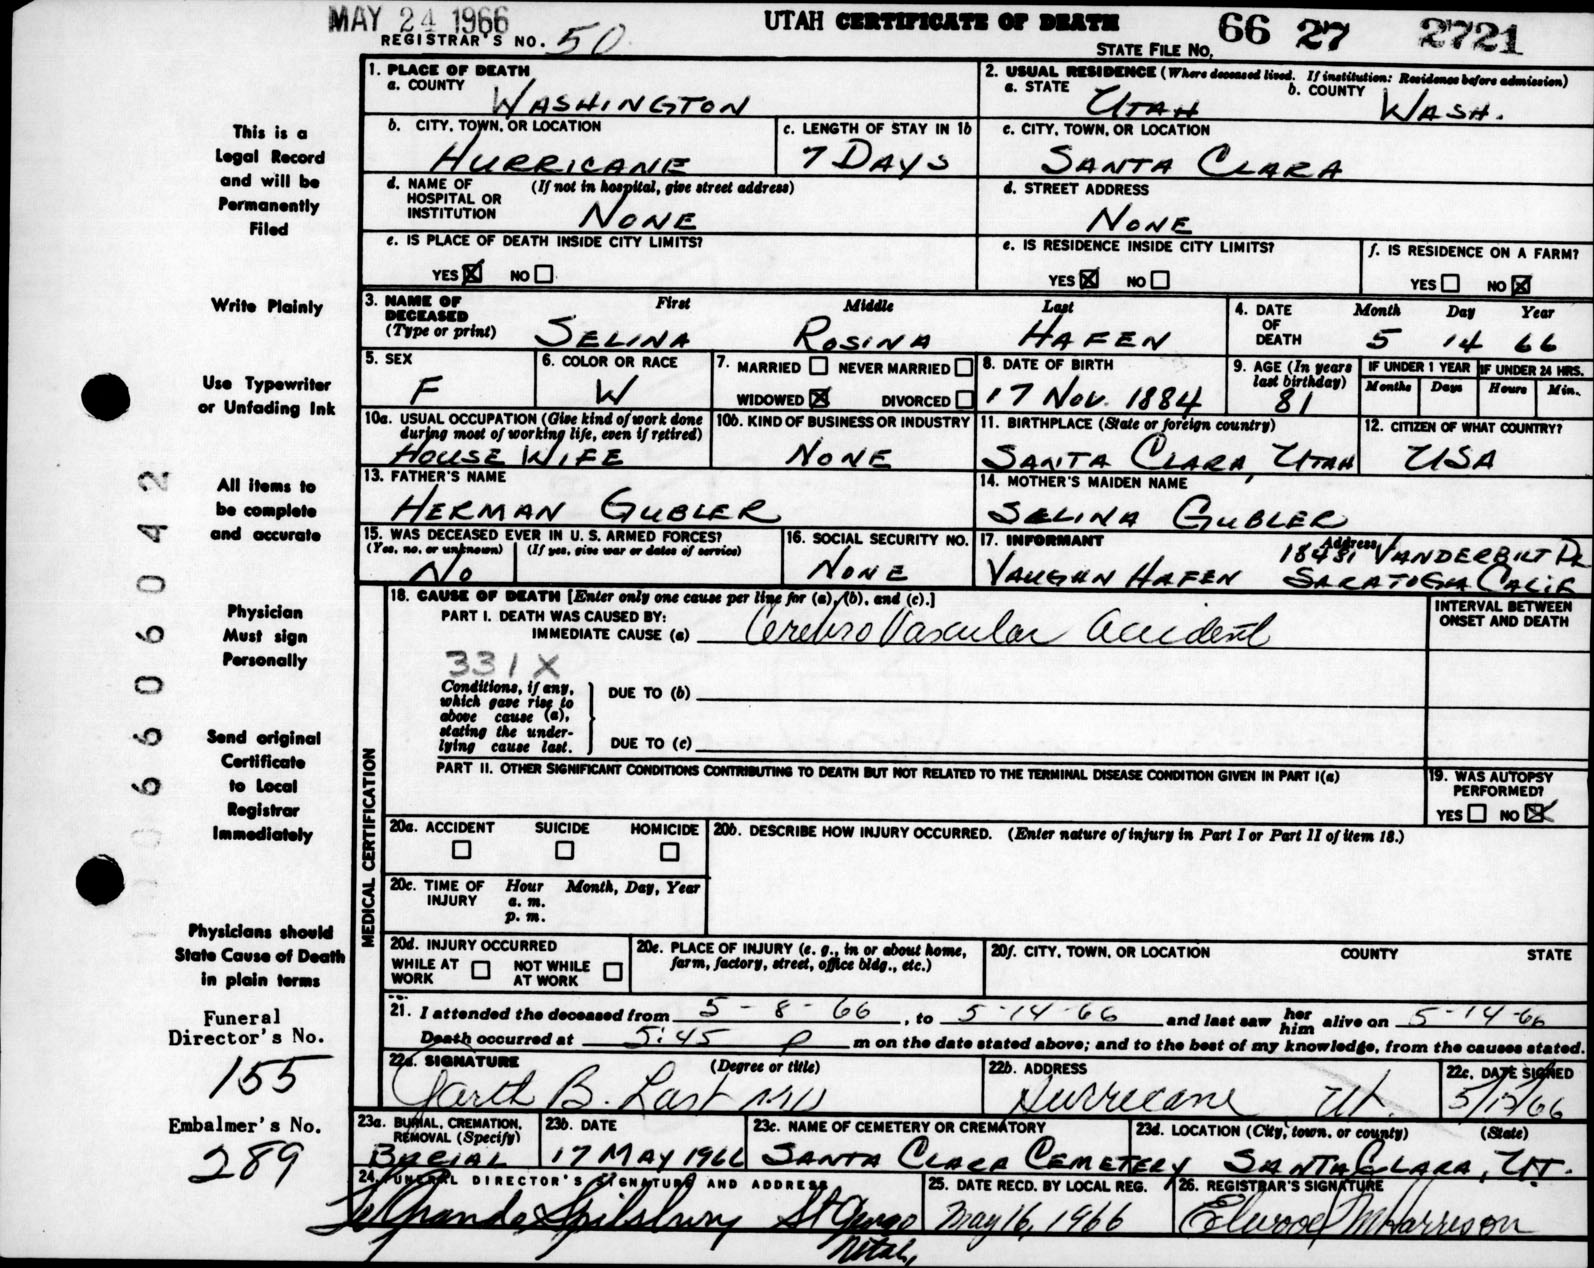 MAY 24 1966
UTAH CERTIFICATE OF DEATH
66 27 2721
REGISTRAR'S NO. 50
STATE FILE NO.
This is a
Legal Record
and will be
Permanently
Filed
Write Plainly
Use Typewriter
or Unfading Ink
All items to
be complete
and accurate
Physician
Must sign
Personally
Send original
Certificate
to Local
Registrar
Immediately
Physicians should
State Cause of Death
in plain terms
Funeral
Director's No.
155
Embalmer's No.
289
6606042
1. PLACE OF DEATH
a. COUNTY WASHINGTON
2. USUAL RESIDENCE (Where deceased lived. If institution: Residence before admission)
a. STATE UTAH b. COUNTY WASH.
b. CITY, TOWN, OR LOCATION HURRICANE
c. LENGTH OF STAY IN 1b 7 DAYS
c. CITY, TOWN, OR LOCATION SANTA CLARA
d. NAME OF HOSPITAL OR INSTITUTION (If not in hospital, give street address) NONE
d. STREET ADDRESS NONE
e. IS PLACE OF DEATH INSIDE CITY LIMITS?
YES ☒ NO ☐
e. IS RESIDENCE INSIDE CITY LIMITS?
YES ☒ NO ☐
f. IS RESIDENCE ON A FARM?
YES ☐ NO ☒
3. NAME OF DECEASED (Type or print) First Middle Last
SELINA ROSINA HAFEN
4. DATE OF DEATH Month Day Year
5 14 66
5. SEX F
6. COLOR OR RACE W
7. MARRIED ☐ NEVER MARRIED ☐
WIDOWED ☒ DIVORCED ☐
8. DATE OF BIRTH 17 NOV. 1884
9. AGE (In years last birthday) 81
IF UNDER 1 YEAR Months Days
IF UNDER 24 HRS. Hours Min.
10a. USUAL OCCUPATION (Give kind of work done during most of working life, even if retired)
HOUSE WIFE
10b. KIND OF BUSINESS OR INDUSTRY NONE
11. BIRTHPLACE (State or foreign country) SANTA CLARA, UTAH
12. CITIZEN OF WHAT COUNTRY? USA
13. FATHER'S NAME HERMAN GUBLER
14. MOTHER'S MAIDEN NAME SELINA GUBLER
15. WAS DECEASED EVER IN U. S. ARMED FORCES?
(Yes, no, or unknown) (If yes, give war or dates of service)
NO
16. SOCIAL SECURITY NO. NONE
17. INFORMANT Address
VAUGHN HAFEN 18481 VANDERBILT DR
SARATOGA CALIF
MEDICAL CERTIFICATION
18. CAUSE OF DEATH [Enter only one cause per line for (a), (b), and (c).]
INTERVAL BETWEEN ONSET AND DEATH
PART I. DEATH WAS CAUSED BY:
IMMEDIATE CAUSE (a) Cerebro Vascular Accident
331X
Conditions, if any, which gave rise to above cause (a), stating the underlying cause last.
DUE TO (b)
DUE TO (c)
PART II. OTHER SIGNIFICANT CONDITIONS CONTRIBUTING TO DEATH BUT NOT RELATED TO THE TERMINAL DISEASE CONDITION GIVEN IN PART I(a)
19. WAS AUTOPSY PERFORMED?
YES ☐ NO ☒
20a. ACCIDENT SUICIDE HOMICIDE
☐ ☐ ☐
20b. DESCRIBE HOW INJURY OCCURRED. (Enter nature of injury in Part I or Part II of item 18.)
20c. TIME OF INJURY Hour Month, Day, Year
a. m.
p. m.
20d. INJURY OCCURRED
WHILE AT WORK ☐ NOT WHILE AT WORK ☐
20e. PLACE OF INJURY (e. g., in or about home, farm, factory, street, office bldg., etc.)
20f. CITY, TOWN, OR LOCATION COUNTY STATE
21. I attended the deceased from 5-8-66, to 5-14-66 and last saw her him alive on 5-14-66
Death occurred at 5:45 P m on the date stated above; and to the best of my knowledge, from the causes stated.
22a. SIGNATURE (Degree or title)
Garth B. Last MD
22b. ADDRESS Hurricane Ut.
22c. DATE SIGNED 5/15/66
23a. BURIAL, CREMATION, REMOVAL (Specify)
BURIAL
23b. DATE 17 MAY 1966
23c. NAME OF CEMETERY OR CREMATORY
SANTA CLARA CEMETERY
23d. LOCATION (City, town, or county) (State)
SANTA CLARA, UT.
24. FUNERAL DIRECTOR'S SIGNATURE AND ADDRESS
Spilsbury St George
Utah,
25. DATE RECD. BY LOCAL REG. May 16, 1966
26. REGISTRAR'S SIGNATURE
Elwood M Harrison